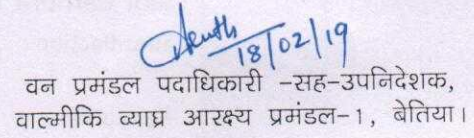 18/02/19
वन प्रमंडल पदाधिकारी -सह-उपनिदेशक,
वाल्मीकि व्याघ्र आरक्ष्य प्रमंडल-1, बेतिया।